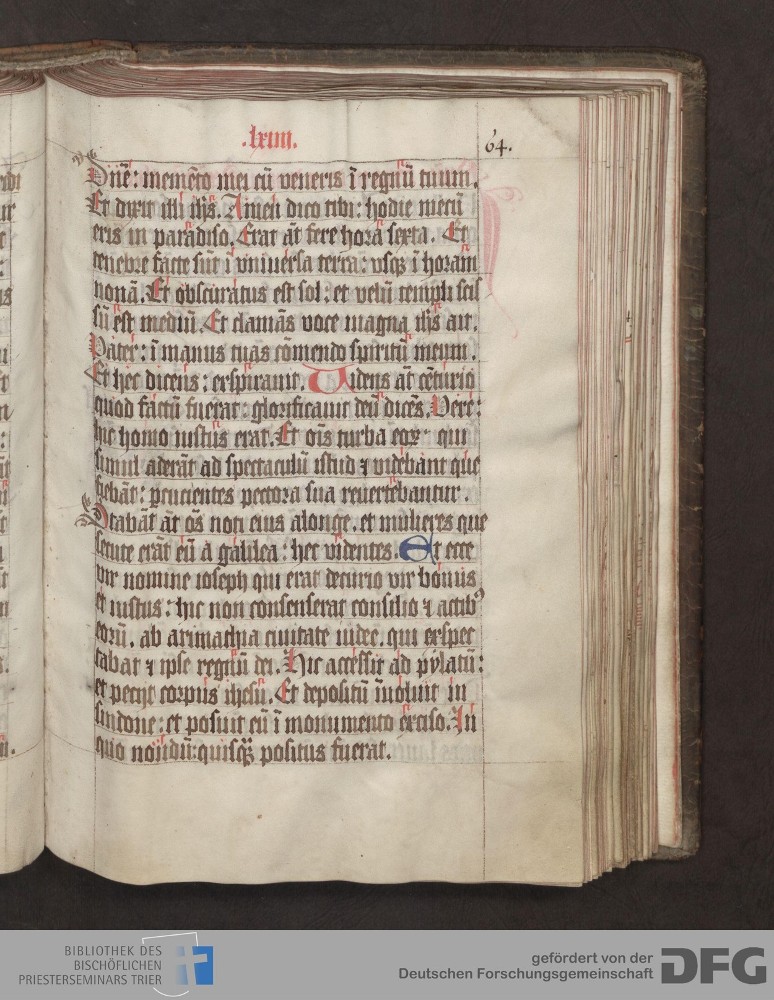 .lxiiii.
64.
Dn̄e: memēto mei cū veneris ī regnū tuum.
Et dixit illi ih̄s. Amen dico tibi: hodie mecū
eris in paradiso. Erat āt fere hora sexta. Et
tenebre facte sūt ī vniuersa terra: vsqꝫ ī horam
nonā. Et obscuratus est sol: et velū templi scis
sū est mediū. Et clamās voce magna ih̄s ait.
Pater: ī manus tuas cōmendo spiritū meum.
Et hec dicens: expirauit. Uidens āt cēturio
quod factū fuerat: glorificauit deū dicēs. Vere:
hic homo iustus erat. Et oīs turba eoꝝ qui
simul aderāt ad spectaculū istud ⁊ videbant que
fiebāt: percucientes pectora sua reuertebantur.
Stabāt āt oēs noti eius alonge. et mulieres que
secute erāt eū a galilea: hec videntes. Et ecce
vir nomine ioseph qui erat decurio vir bonus
et iustus: hic non consenserat consilio ⁊ actibꝰ
eorū. ab arimathia ciuitate iudee. qui expec
tabat ⁊ ipse regnū dei. Hic accessit ad pylatū:
et peciit corpus ihesū. Et depositū īuoluit in
sindone: et posuit eū ī monumento exciso. In
quo nondū: quisqꝫ positus fuerat.
BIBLIOTHEK DES
BISCHÖFLICHEN
PRIESTERSEMINARS TRIER
gefördert von der
Deutschen Forschungsgemeinschaft
DFG